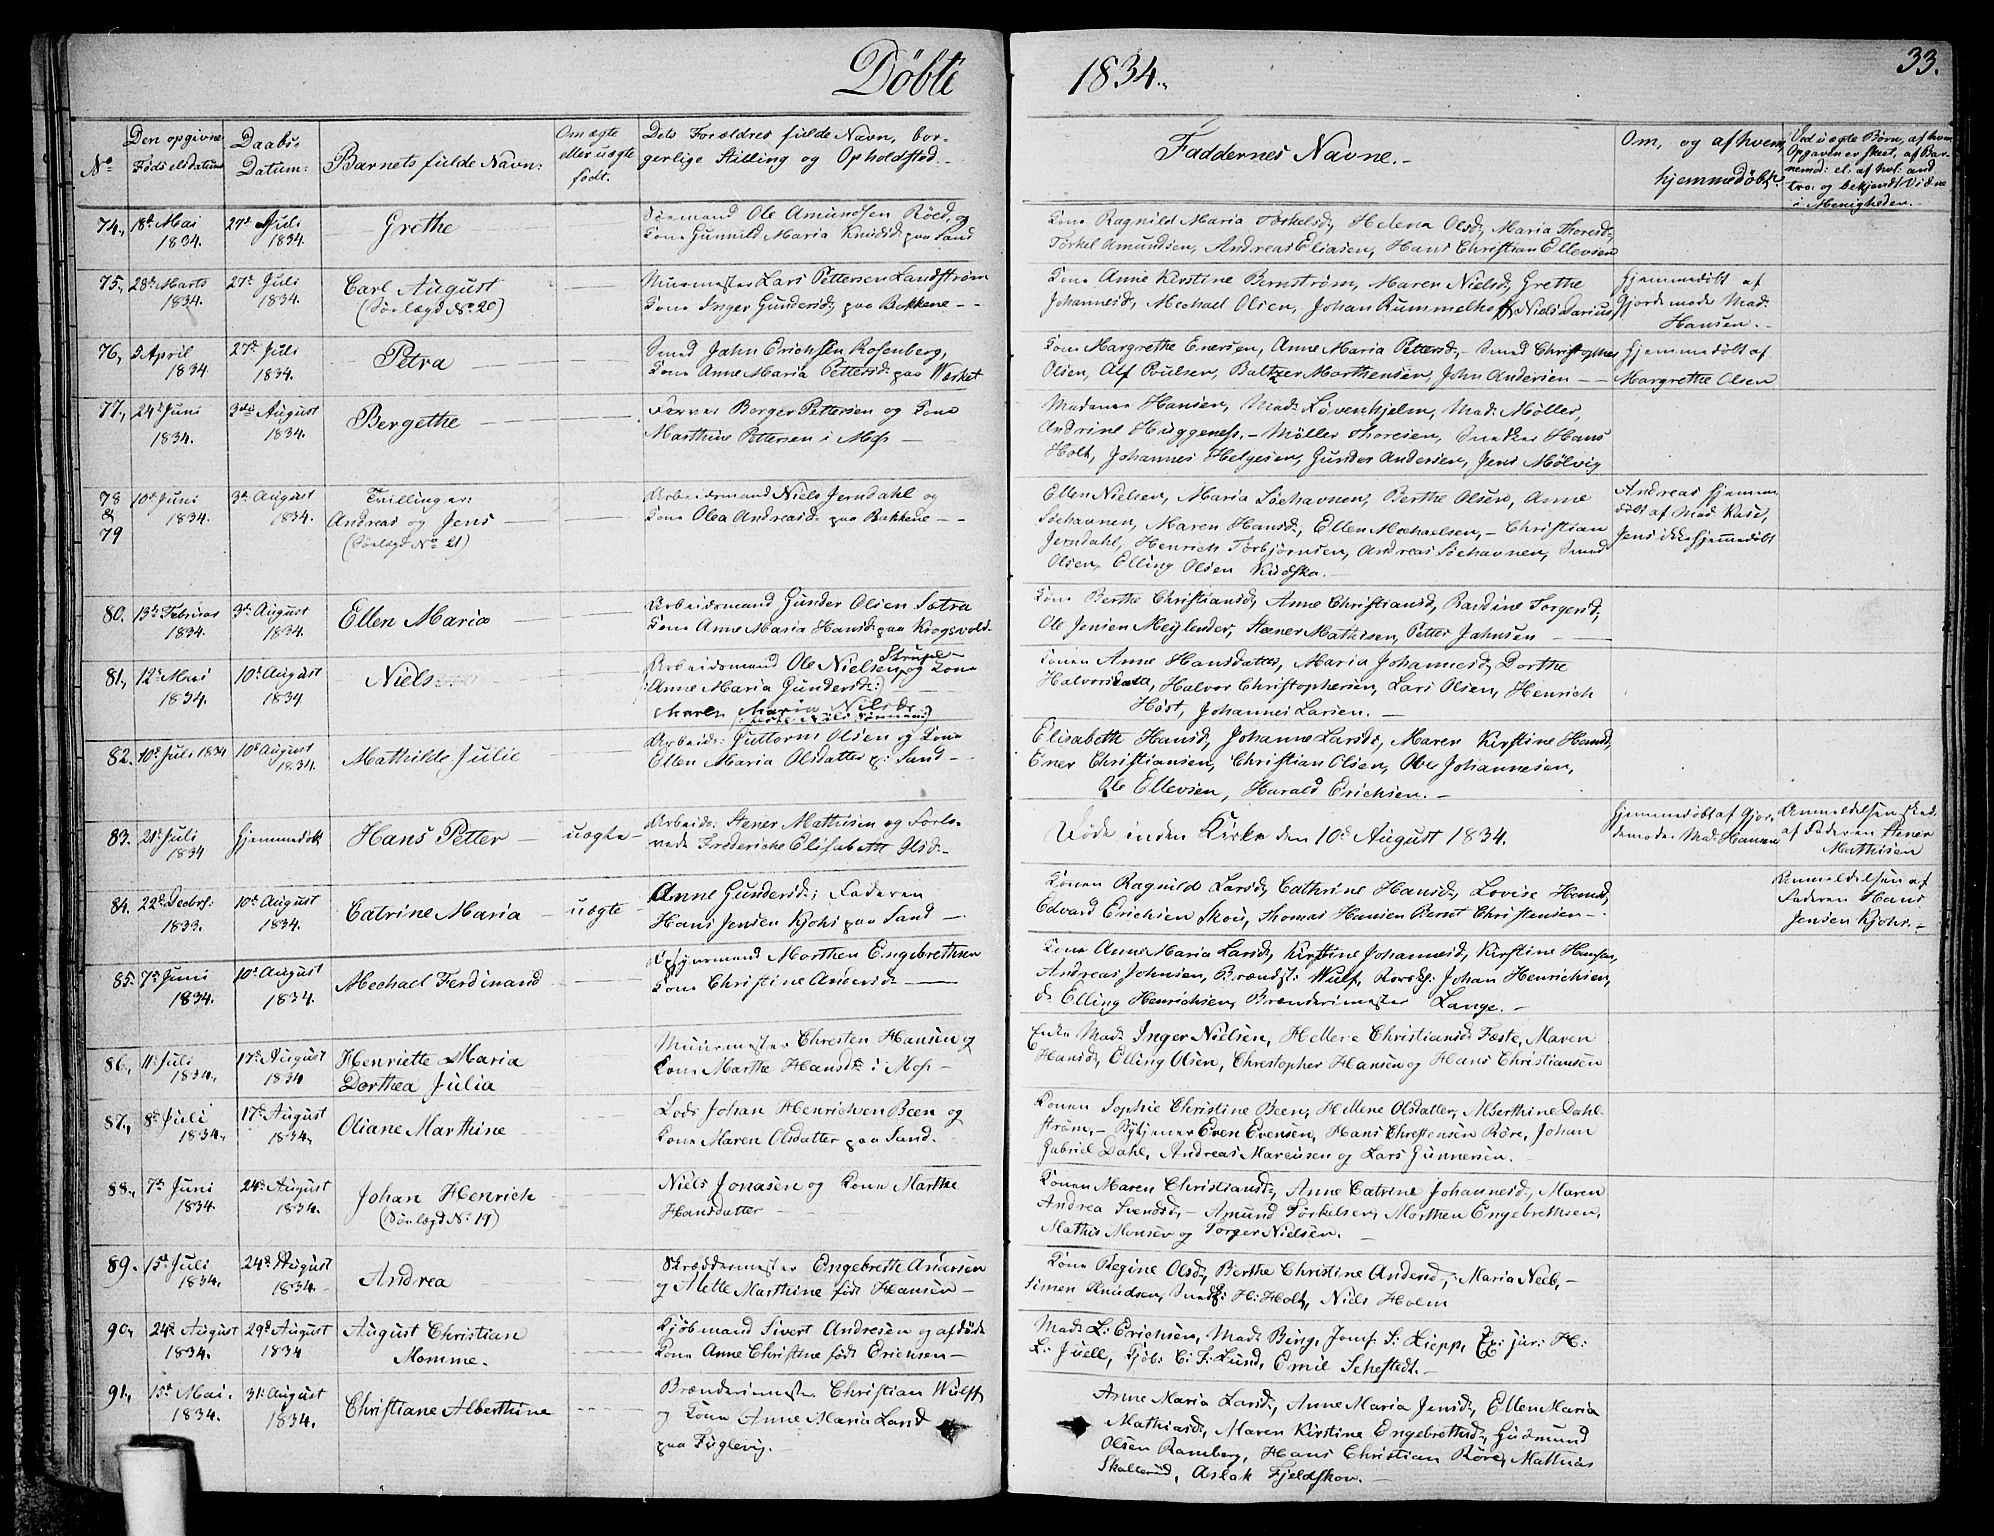 Döbte
1834.
33.
No
Den opgivne
Fødselsdatum
Daabs-
Datum:
Barnets fulde Navn:
Om ægte
eller uægte
født.
Dets Forældres fulde Navn, bor-
gerlige Stilling og Opholdsted.
Faddernes Navne.
Om, og af hvem,
hjemmedøbt.
Ved uægte Børn, af hvem
Opgaven er skeet, af Bar-
nemod: el: af
tro: og bekjendt Vidne
i Menigheden.
74, 18de Mai
1834.
27d Juli
1834.
Grethe
Ole Amundsen Röed, og
Kone Gunnild Maria Knudsd: paa Sand
Kone Ragnild Maria Torkelsd, Helena Olsd, Maria Thoresd,
Torkel Amundsen, Andreas Eliasen, Hans Christian Ellevsen
75, 28de Marts
1834.
27de Juli
1834.
Carl August
(Sörlagd No 20)
Muurmester Lars Pettersen Landström
Kone Inger Gundersd, paa Bakkene
Kone Anne Kirstine Bernström, Maren Nielsd, Grethe
Johannesd, Mechael Olsen, Johan Rummelhoff, Niels Darius
Hjemmedöbt af
Gjordemode Mad.
Hansen.
76, 5 April
1834
27de Juli
1834.
Petra
Smed Jahn Erichsen Rosenberg,
Kone Anne Maria Pettersd: paa Værket
Kone Margrethe Enersen, Anne Maria Pettersd, Smed Christopher
Olsen, Alf Poulsen, Baltzer Marthensen, John Andersen
Hjemmedöbt af
Margrethe Olsen
77, 24d Juni
1834.
3die August
1834.
Bergethe
Farver Borger Pettersen og Kone
Marthine Pettersen i Moss
Madame Hansen, Mad: Lövenhjelm, Mad: Möller,
Andrine Huggeness, Möller Thoresen, Snedker Hans
Holt, Johannes Helgesen, Gunder Andersen, Jens Mölvig
78
&
79
10de Juni
1834.
3de August
1834.
Tvillinger:
Andreas og Jens
(Sörlagd No 21)
Arbeidsmand Niels Jerndahl og
Kone Olea Andreasd: paa Bakkene
Ellen Nielsen, Maria Söehavnen, Berthe Olsen, Anne
Söehavnen, Maren Hansd, Ellen Mechaelsen, Christian
Jerndahl, Henrich Torbjörnsen, Andreas Söehavnen,
Olsen, Elling Olsen Kudska.
Andreas hjemme
döbt af Mad.
Jens ikke hjemmedöbt
80. 13de Februar
1834.
3de August
1834.
Ellen Maria
Arbeidsmand Gunder Olsen Sætra
Kone Anne Maria Hansd: paa Krogsvold.
Kone Berthe Christiansd, Anne Christiansd, Randine Torgersd,
Ole Jensen Meylender, Stener Mathisen, Petter Jahnsen
81, 12te Mai
1834.
10d August
1834
Niels
Arbeidsmand Ole Nielsen og Kone
Anne Maria Gundersd:
Maren Maria Nilsdr.
Konen Anne Hansdatter, Maria Johannesd, Dorthe
Halvorsdatter, Halvor Christophersen, Lars Olsen, Henrich
Höst, Johannes Larsen.
82. 10d Juli 1834
10de August
1834.
Mathilde Julie
Arbeids: Guttorm Olsen og Kone
Ellen Maria Olsdatter p: Sand
Elisabeth Hansd, Johanne Larsd, Maren Kirstine Hansd,
Ener Christiansen, Christian Olsen, Ole Johannesen,
Ole Ellevsen, Harald Erichsen.
83. 21d Juli
1834
Hjemmedöbt
Hans Petter
uægte
Arbeids: Stener Mathisen og Forlo-
vede Frederiche Elisabeth Olsd.
Döde inden Kirke den 10d August 1834.
Hjemmedöbt af Gjor-
demoder Mad: Hansen
Anmeldelsen skeed
af Faderen Stener
Mathisen
84. 22d Decbr:
1833.
10d August
1834.
Catrine Maria
uægte
Anne Gundersd:; Faderen
Hans Jensen Kjohs paa Sand
Konen Ragnild Larsd, Cathrine Hansd, Lovise Hansd,
Edvard Erichsen Skou, Thomas Hansen Bernt Christensen
Anmeldelsen af
Faderen Hans
Jensen Kjohs.
85. 7de Juni
1834.
10d August
1834.
Mechael Ferdinand
Marthen Engebrethsen
Kone Christine Andersd
Kone Anne Maria Larsd, Kirstine Johannesd, Kirstine Hansen,
Andreas Johnsen, Brændst: Wulf, Johan Henrichsen,
do Elling Henrichsen, Brænderimester Lange.
86, 11 Juli
1834.
17d August
1834
Henriette Maria
Dorthea Julia
Muurmester Chresten Hansen og
Kone Marthe Hansdtr i Moss
Enke Mad: Inger Nielsen, Hellene Christiansd Fæste, Maren
Hansd, Elling Olsen, Chrestopher Hansen og Hans Christiansen
87, 8d Juli
1834.
17d August
1834.
Oliane Marthine
Lods Johan Henrichsen Been og
Kone Maren Olsdatter paa Sand.
Konen Sophie Christine Been, Hellene Olsdatter, Alberthine Dahl-
ström, Bytjener Even Evensen, Hans Chrestensen Röre, Johan
Gabriel Dahl, Andreas Marcusen og Lars Gunnersen.
88, 7de Juni
1834.
24d August
1834.
Johan Henrich
(Sörlagd No 19)
Niels Jonasen og Kone Marthe
Hansdatter
Konen Maren Christiansd, Anne Catrine Johannesd, Maren
Andrea Svendsd, Amund Torkelsen, Morthen Engebrethsen,
Mathis Monsen og Torger Nielsen.
89. 15d Juli
1834.
24d August
1834.
Andrea
Skræddermester Engebreth Andersen
og Mette Marthine født Hansen
Kone Regine Olsd, Berthe Christine Andersd, Maria Neeb,
Simen Knudsen, Snedk: H: Holt, Niels Holm
90, 24d August
1834.
29d August
1834
August Christian
Momme.
Kjöbmand Sivert Andresen og afdøde
Kone Anne Christine født Erichsen
Mad: L: Erichsen, Mad: Bing, Jomf. S: Kiepp, Ex: jur: H:
L: Juell, Kjöb: C: F: Lund, Emil Sehestedt.
91, 15d Mai.
1834.
31: August
1834.
Christiane Alberthine
Brænderimester Christian Wulff
og Kone Anne Maria Larsd
paa Fuglevig.
Anne Maria Larsd, Anne Maria Jensd, Ellen Maria
Mathiasd, Maren Kirstine Engebrethsd, Gudmund
Olsen Ramberg, Hans Christian Röre, Mathias
Skallerud, Aslak Fjeldskov.